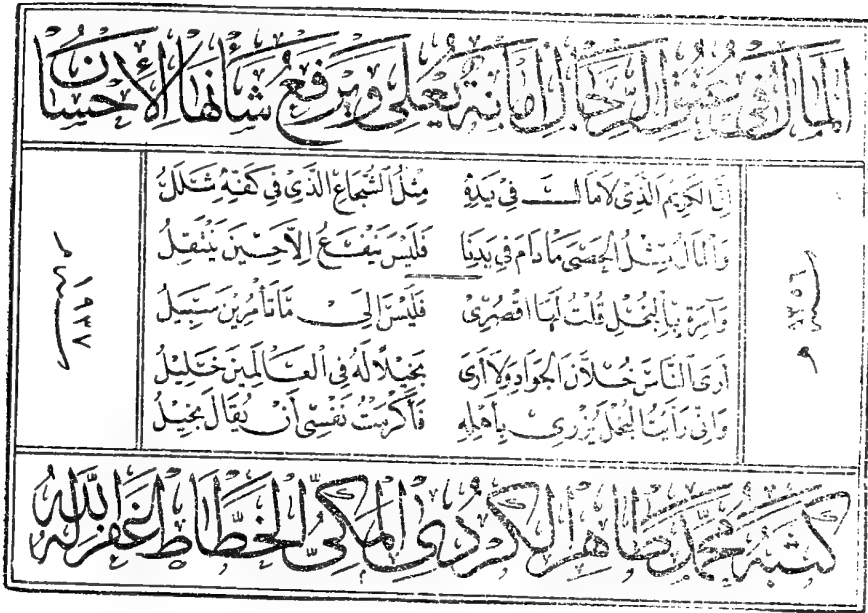 المَالُ فِي عُنُقِ الرِّجَالِ أَمَانَةٌ يُعْلِي وَيَرْفَعُ شَأْنَهَا الإِحْسَانُ
إِنَّ الكَرِيمَ الَّذِي لَامَالَ فِي يَدِهِ مِثْلُ الشُّجَاعِ الَّذِي فِي كَفِّهِ شَلَلُ
وَالمَالُ مِثْلُ الحَصَى مَا دَامَ فِي يَدِنَا فَلَيْسَ يَنْفَعُ إِلَّا حِينَ يَنْتَقِلُ
وَآمِرَةٍ بِالبُخْلِ قُلْتُ لَهَا اقْصُرِي فَلَيْسَ إِلَى مَا تَأْمُرِينَ سَبِيلُ
أَرَى النَّاسَ خُلَّانَ الجَوَادِ وَلَا أَرَى بَخِيلًا لَهُ فِي العَالَمِينَ خَلِيلُ
وَإِنِّي رَأَيْتُ البُخْلَ يُزْرِي بِأَهْلِهِ فَأَكْرَمْتُ نَفْسِي أَنْ يُقَالَ بَخِيلُ
سنة ١٣٥٦ هـ
سنة ١٩٣٧ م
كَتَبَهُ مُحَمَّد طَاهِر الكُرْدِي المَكِّيُّ الخَطَّاط غَفَرَ اللهُ لَهُ